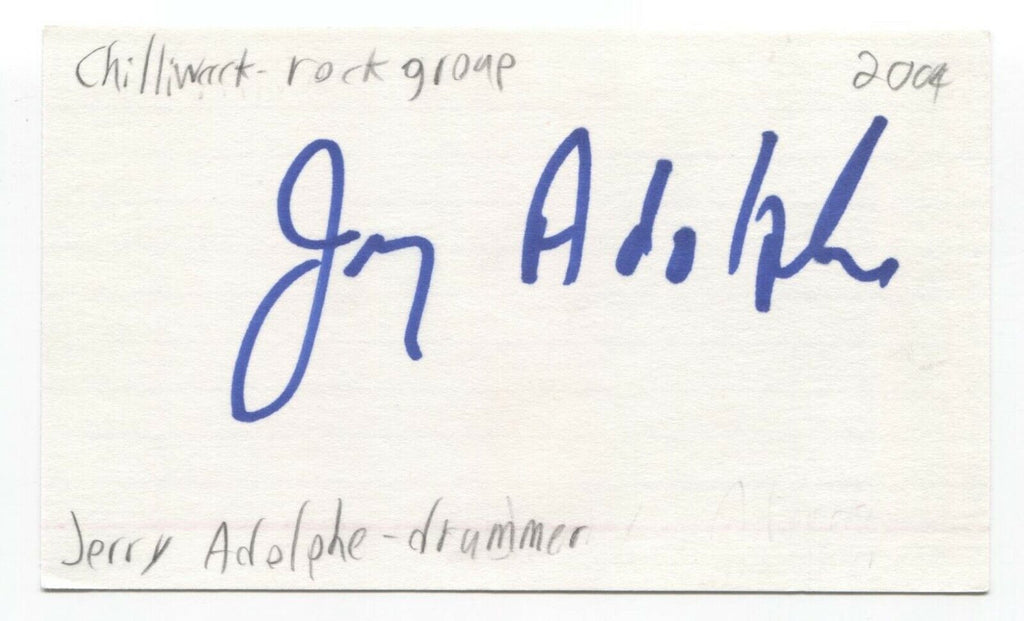 Chilliwack - rock group 2004
Jerry Adolphe
Jerry Adolphe - drummer